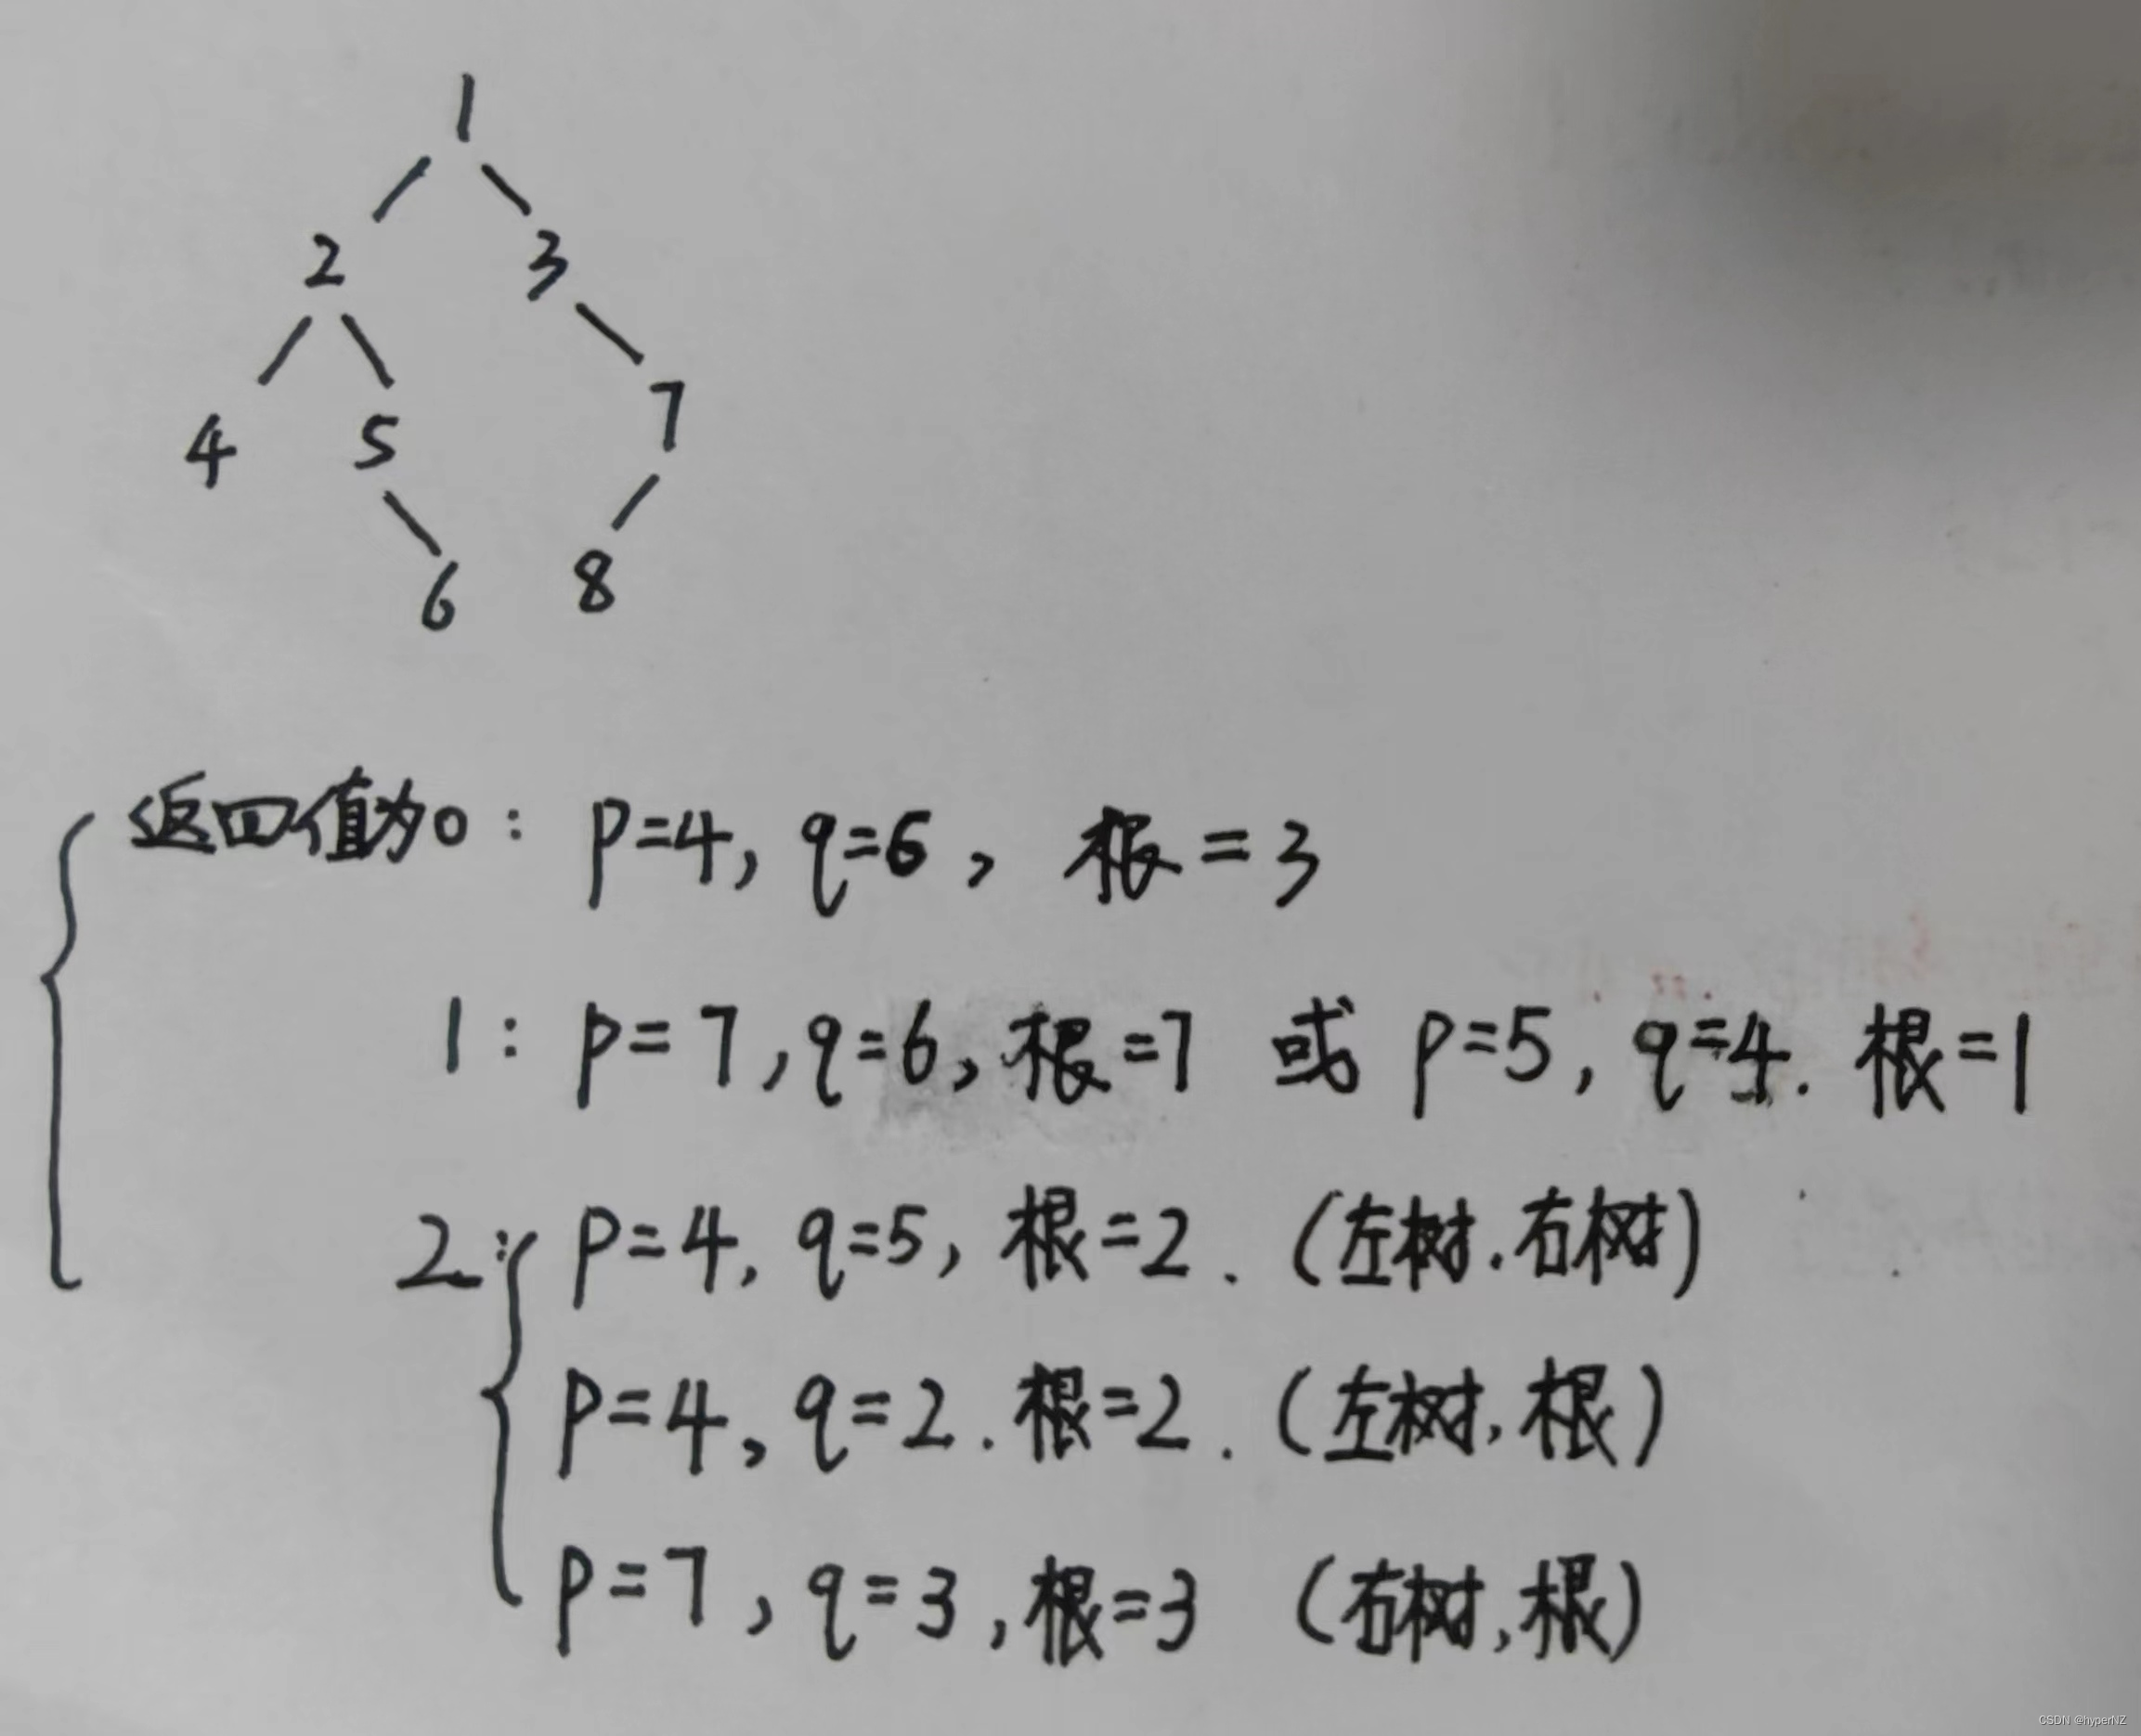 1
2 3
4 5 7
6 8
返回值为0: p=4, q=6, 根=3
1: p=7, q=6, 根=7 或 p=5, q=4. 根=1
2: p=4, q=5, 根=2. (左树.右树)
p=4, q=2. 根=2. (左树, 根)
p=7, q=3, 根=3 (右树, 根)
CSDN @hyperNZ